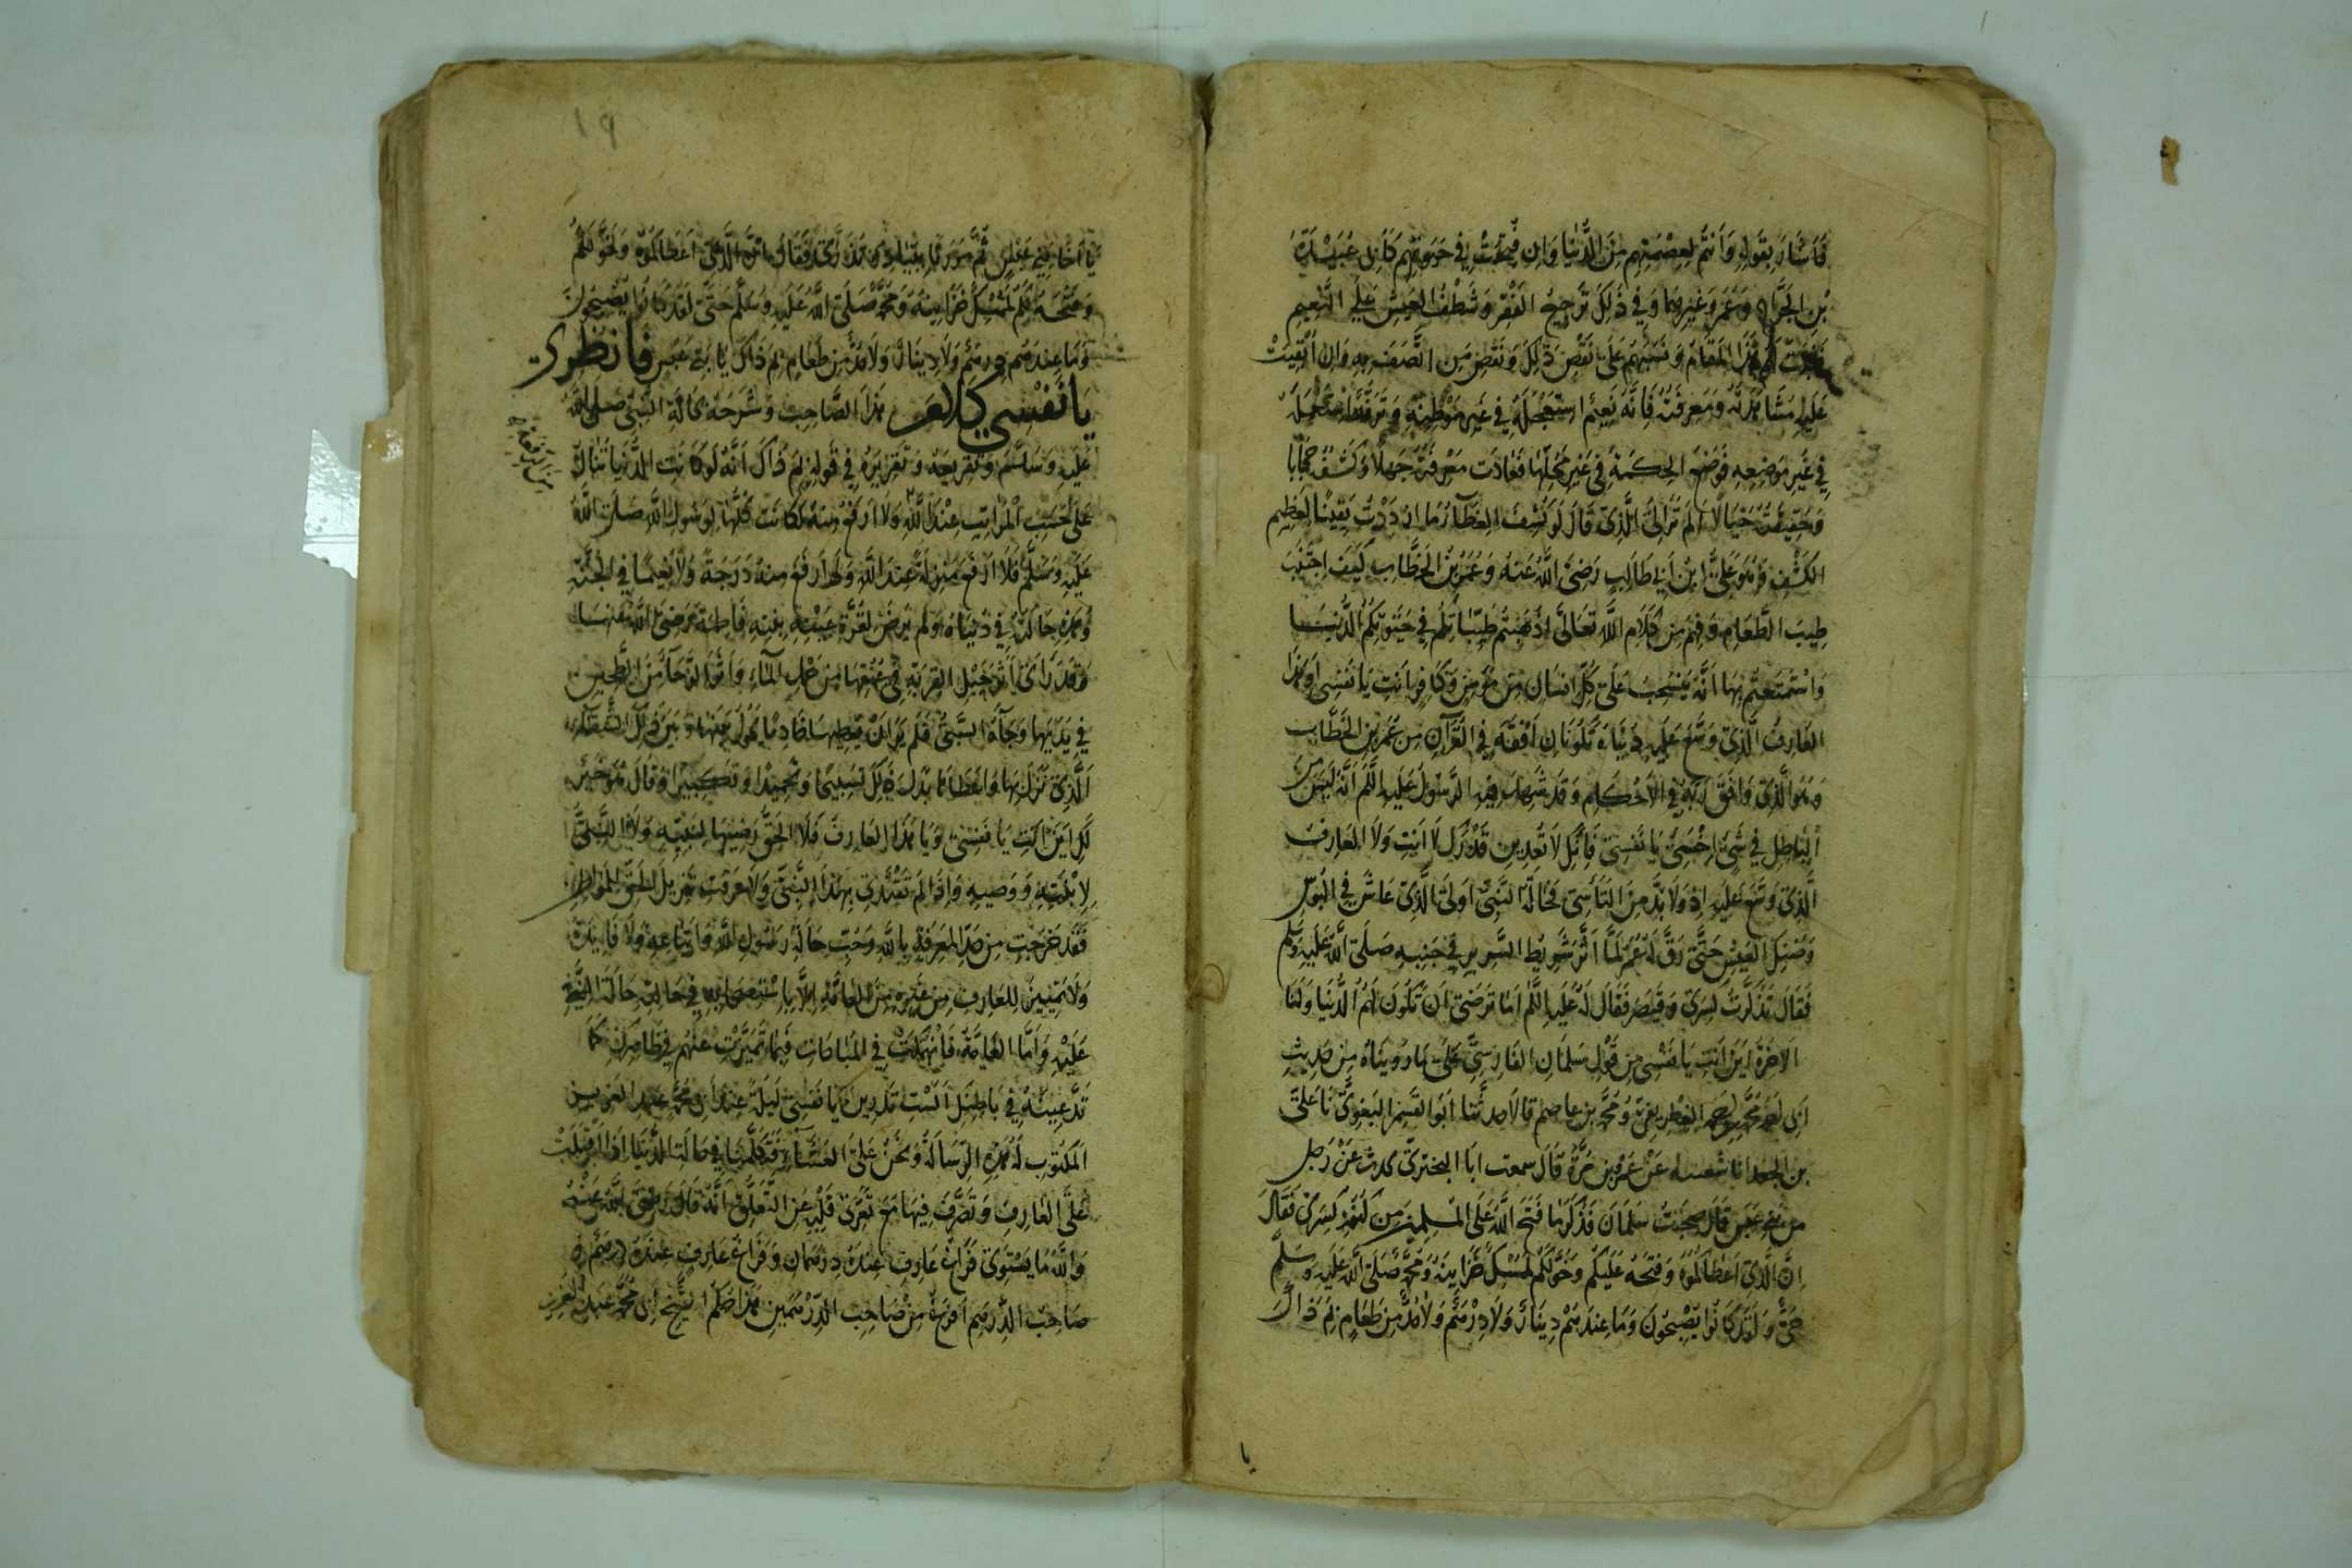 فَاَشَارَ بِقَوْلِهِ وَاَنْتُمْ لِعِصْمَتِهِمْ مِنَ الدُّنْيَا وَاِنْ فُتِحَتْ فِي حَيٰوتِهِمْ كَاَبِي عُبَيْدَةَ
بْنِ الْجَرَّاحِ وَعُمَرَ وَغَيْرِهِمَا وَفِي ذٰلِكَ تَرْجِيحُ الْفَقْرِ وَشَظْفُ الْعَيْشِ عَلَى النَّعِيمِ
هٰذَا الْمَقَامُ وَنَبَّهَهُمْ عَلَى نَقْصِ ذٰلِكَ وَنَقْصِ مَنِ اتَّصَفَ بِهِ وَاِنْ اُبْقِيَتْ
عَلَيْهِ مُشَاهَدَتُهُ وَمَعْرِفَتُهُ فَاِنَّهُ نَعِيمٌ اسْتَعْجَلَهُ فِي غَيْرِ مَوْطِنِهِ
فِي غَيْرِ مَوْضِعِهِ فَوَضَعَ الْحِكْمَةَ فِي غَيْرِ مَحَلِّهَا فَعَادَتْ مَعْرِفَتُهُ جَهْلًا وَكَشْفُهُ حِجَابًا
وَحَقِيقَتُهُ خَيَالًا اَلَمْ تَرَ اِلَى الَّذِي قَالَ لَوْ كُشِفَ الْغِطَاءُ مَا ازْدَدْتُ يَقِينًا لِعَظِيمِ
الْكَشْفِ وَهُوَ عَلِيُّ ابْنُ اَبِي طَالِبٍ رَضِيَ اللّٰهُ عَنْهُ وَعُمَرُ بْنُ الْخَطَّابِ كَيْفَ اجْتَنَبَ
طِيبَ الطَّعَامِ وَفَهِمَ مِنْ كَلَامِ اللّٰهِ تَعَالَى اَذْهَبْتُمْ طَيِّبَاتِكُمْ فِي حَيٰوتِكُمُ الدُّنْيَا
وَاسْتَمْتَعْتُمْ بِهَا اَنَّهُ يَنْسَحِبُ عَلَى كُلِّ اِنْسَانٍ مِنْ مُؤْمِنٍ وَكَافِرٍ اَنْتِ يَا نَفْسِي اَوْ هٰذَا
الْعَارِفُ الَّذِي وَسَّعَ عَلَيْهِ دُنْيَاهُ تَكُونَانِ اَفْقَهَ فِي الْقُرْاٰنِ مِنْ عُمَرَ بْنِ الْخَطَّابِ
وَهُوَ الَّذِي وَافَقَ رَبَّهُ فِي الْاَحْكَامِ وَقَدْ شَهِدَ فِيهِ الرَّسُولُ عَلَيْهِ السَّلَمُ اَنَّهُ لَيْسَ مِنَ
الْبَاطِلِ فِي شَيْءٍ اِخْسَئِي يَا نَفْسِي فَاِنَّكِ لَا تَعْدِينَ قَدْرَكِ لَا اَنْتِ وَلَا الْعَارِفُ
الَّذِي وَسَّعَ عَلَيْهِ اِذْ وَلَا بُدَّ مِنَ التَّاَسِّي فَحَالَةُ النَّبِيِّ اَوْلَى الَّذِي عَاشَ فِي الْبُؤْسِ
وَضَنْكِ الْعَيْشِ حَتَّى رَقَّ لَهُ عُمَرُ لَمَّا اَثَّرَ شَرِيطُ السَّرِيرِ فِي جَنْبِهِ صَلَّى اللّٰهُ عَلَيْهِ وَسَلَّمَ
فَقَالَ تَذَكَّرْتُ كِسْرَى وَقَيْصَرَ فَقَالَ لَهُ عَلَيْهِ السَّلَمُ اَمَا تَرْضَى اَنْ تَكُونَ لَهُمُ الدُّنْيَا وَلَنَا
الْاٰخِرَةُ اَيْنَ اَنْتِ يَا نَفْسِي مِنْ قَوْلِ سَلْمَانَ الْفَارِسِيِّ عَلَى مَا رُوِّينَاهُ مِنْ حَدِيثِ
اَبِي نُعَيْمٍ مُحَمَّدِ بْنِ اَحْمَدَ الْغِطْرِيفِيِّ وَمُحَمَّدِ بْنِ عَاصِمٍ قَالَا حَدَّثَنَا اَبُو الْقَسِمِ الْبَغَوِيُّ نَا عَلِيُّ
بن الجعد انا شعبه عَنْ عَمْرِو بْنِ مُرَّةَ قَالَ سمعت ابا البختري يحدث عَنْ رَجُلٍ
مِنْ بَنِي عَبْسٍ قَالَ صَحِبْتُ سَلْمَانَ فَذَكَرَ مَا فَتَحَ اللّٰهُ عَلَى الْمُسْلِمِينَ مِنْ كُنُوزِ كِسْرَى فَقَالَ
اِنَّ الَّذِي اَعْطَاكُمُوهُ وَفَتَحَهُ عَلَيْكُمْ وَخَوَّلَكُمْ لَمُمْسِكٌ خَزَايِنَهُ وَمُحَمَّدٌ صَلَّى اللّٰهُ عَلَيْهِ وَسَلَّمَ
حَيٌّ وَلَقَدْ كَانُوا يُصْبِحُونَ وَمَا عِنْدَهُمْ دِينَارٌ وَلَا دِرْهَمٌ وَلَا مُدٌّ مِنْ طَعَامٍ لِمَ ذَاكَ
يا
١٩
يَا اَخَا بَنِي عَبْسٍ ثُمَّ مَرَرْنَا بِبَيَادِرَ تُذَرَّى فَقَالَ اِنَّ الَّذِي اَعْطَاكُمُوهُ وَخَوَّلَكُمْ
وَفَتَحَهُ لَكُمْ لَمُمْسِكٌ خَزَايِنَهُ وَمُحَمَّدٌ صَلَّى اللّٰهُ عَلَيْهِ وَسَلَّمَ حَيٌّ لَقَدْ كَانُوا يُصْبِحُونَ
وَمَا عِنْدَهُمْ دِرْهَمٌ وَلَا دِينَارٌ وَلَا مُدٌّ مِنْ طَعَامٍ لِمَ ذَاكَ يَا اَخَا بَنِي عَبْسٍ فَانْظُرِي
يَا نَفْسِي كَلَامَ هٰذَا الصَّاحِبِ وَشَرْحَهُ حَالَةَ النَّبِيِّ صلى الله
عَلَيْهِ وَسَلَّمَ وَتَقْرِيعَهُ وَتَعْزِيرَهُ فِي قَوْلِهِ لِمَ ذَاكَ اَنَّهُ لَوْ كَانَتِ الدُّنْيَا تُنَالُ
عَلَى حَسَبِ الْمَرَاتِبِ عِنْدَ اللّٰهِ وَلَا اَرْفَعَ مِنْهُ لَكَانَتْ كُلُّهَا لِرَسُولِ اللّٰهِ صَلَّى اللّٰهُ
عَلَيْهِ وَسَلَّمَ فَلَا اَرْفَعَ مَنْزِلَةً عِنْدَ اللّٰهِ وَلَا اَرْفَعَ مِنْهُ دَرَجَةً وَلَا نَعِيمًا فِي الْجَنَّةِ
وَهٰذِهِ حَالَتُهُ فِي دُنْيَاهُ وَلَمْ يَرْضَ لِقُرَّةِ عَيْنِهِ بِنْتِهِ فَاطِمَةَ رَضِيَ اللّٰهُ عَنْهَا
وَقَدْ رَاَى اَثَرَ حَبْلِ الْقِرْبَةِ فِي عُنُقِهَا مِنْ حَمْلِ الْمَاءِ وَاَثَّرَ الرَّحَا مِنَ الطَّحِينِ
فِي يَدَيْهَا وَجَاءَهُ السَّبْيُ فَلَمْ يَرَ اَنْ يُعْطِيَهَا خَادِمًا يَحُولُ بَيْنَهَا وَبَيْنَ ذٰلِكَ الشَّقَاءِ
الَّذِي نَزَلَ بِهَا وَاَعْطَاهَا بَدَلَ ذٰلِكَ تَسْبِيحًا وَتَحْمِيدًا وَتَكْبِيرًا وَقَالَ هُوَ خَيْرٌ
لَكِ اَيْنَ اَنْتِ يَا نَفْسِي وَيَا هٰذَا الْعَارِفُ فَلَا الْحَقُّ رَضِيَهَا لِنَبِيِّهِ وَلَا النَّبِيُّ
لِابْنَتِهِ وَوَصِيِّهِ وَاِذَا لَمْ تَقْتَدِي بِهٰذَا النَّبِيِّ وَلَا عَرَفْتِ تَنْزِيلَ الْحَقِّ الْمَوَاطِنَ
فَقَدْ خَرَجْتِ مِنْ حَدِّ الْمَعْرِفَةِ بِاللّٰهِ وَحُبِّ حَالَةِ رَسُولِ اللّٰهِ وَاتِّبَاعِهِ وَلَا فَايِدَةَ
وَلَا تَمْيِيزَ لِلْعَارِفِ مِنْ غَيْرِهِ مِنَ الْعَامَّةِ اِلَّا بِاسْتِصْحَابِهِ فِي حَالِهِ حَالَةَ النَّبِيِّ
عَلَيْهِ وَاَمَّا الْعَامَّةُ فَانْهَمَكَتْ فِي الْمُبَاحَاتِ فَبِمَا تَمَيَّزْتَ عَنْهُمْ فِي ظَاهِرِكَ كَمَا
تَدَّعِينَهُ فِي بَاطِنِكِ اَلَسْتِ تَدْرِينَ يَا نَفْسِي لَيْلَةً عِنْدَ اَبِي مُحَمَّدٍ عَبْدِ الْعَزِيزِ
الْمَكْتُوبِ لَهُ هٰذِهِ الرِّسَالَةُ وَنَحْنُ عَلَى الْعَشَاءِ فَتَكَلَّمْنَا فِي حَالَةِ الدُّنْيَا اِذَا اَقْبَلَتْ
عَلَى الْعَارِفِ وَتَصَرَّفَ فِيهَا مَعَ تَعَرِّي قَلْبِهِ عَنِ التَّعَلُّقِ اَنَّهُ قَالَ رَضِيَ اللّٰهُ عَنْهُ
وَاللّٰهِ مَا يَسْتَوِي فَرَاغُ عَارِفٍ عِنْدَهُ دِرْهَمَانِ وَفَرَاغُ عَارِفٍ عِنْدَهُ دِرْهَمٌ
صَاحِبُ الدِّرْهَمِ اَفْرَغُ مِنْ صَاحِبِ الدِّرْهَمَيْنِ هٰذَا حُكْمُ الشَّيْخِ اَبِي مُحَمَّدٍ عَبْدِ الْعَزِيزِ